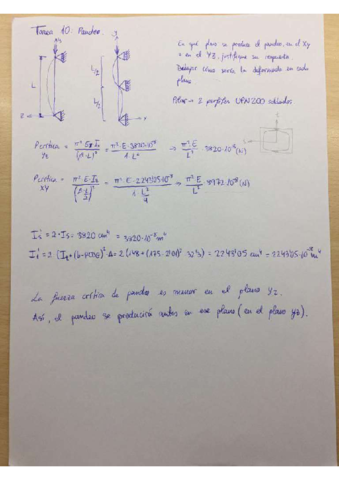 Tarea 10: Pandeo
En qué plano se produce el pandeo, en el xy
o en el YZ, justifique su respuesta
Dibujar cómo sería la deformada en cada
plano
Pilar → 2 perfiles UPN 200 soldados
L
L/2
L/2
P crítica yz = π²·E·I / (1·L)² = π²·E·3820·10⁻⁸ / 1·L² → π²·E / L² · 3820·10⁻⁸ (N)
P crítica xy = π²·E·I / (1·L/2)² = π²·E·2243'05·10⁻⁸ / 1·L²/4 → π²·E / L² 8972·10⁻⁸ (N)
= 2·I = 3820 cm⁴ = 3820·10⁻⁸ m⁴
= 2243'05 cm⁴ = 2243'05·10⁻⁸ m⁴
La fuerza crítica de pandeo es menor en el plano yz.
Así, el pandeo se producirá antes en ese plano (en el plano yz).